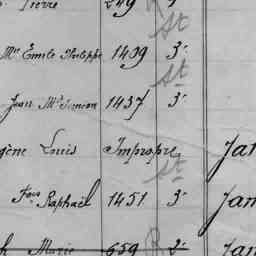 Pierre 249
St
Mie Emile Philippe 1409 3e
St
Jean Mie Simeon 1437 3e
gène Louis Impropre Jan
St
Fois Raphaël 1451 3e Jam
h Marie 659 R 2e Jan